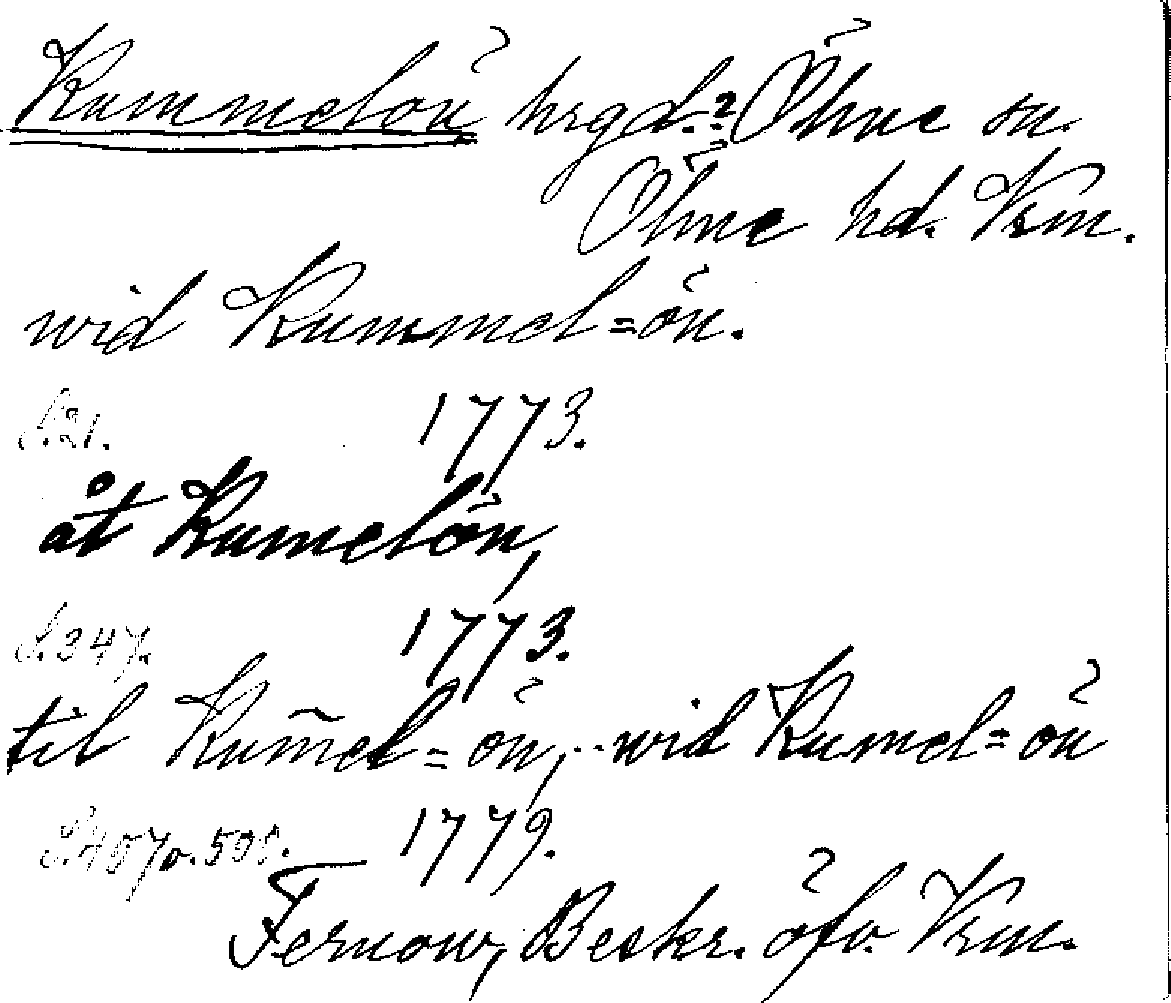 Kummelön hrgd.? Ölme sn.
Ölme hd. Vrm.
wid Kummel=ön.
S. 21. 1773.
åt Kumelön,
S. 347. 1773.
til Kum̃el=ön, .. wid Kumel=ön
1779.
Fernow, Beskr. öfv. Vrm.